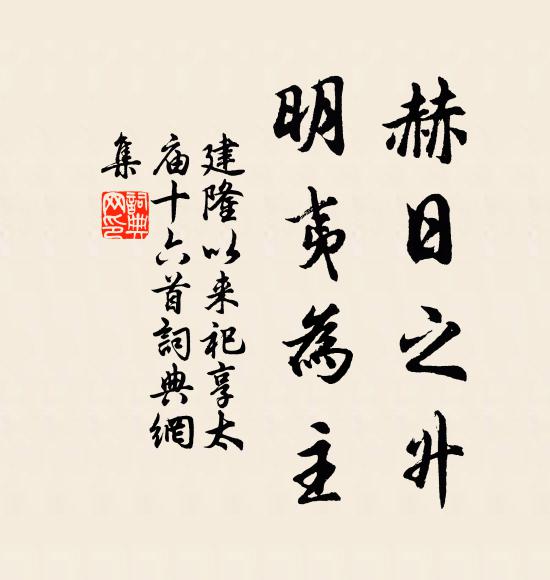 赫日之升
明夷為主
建隆以来祀享太
庙十六首詞典網
集
詞典
网印